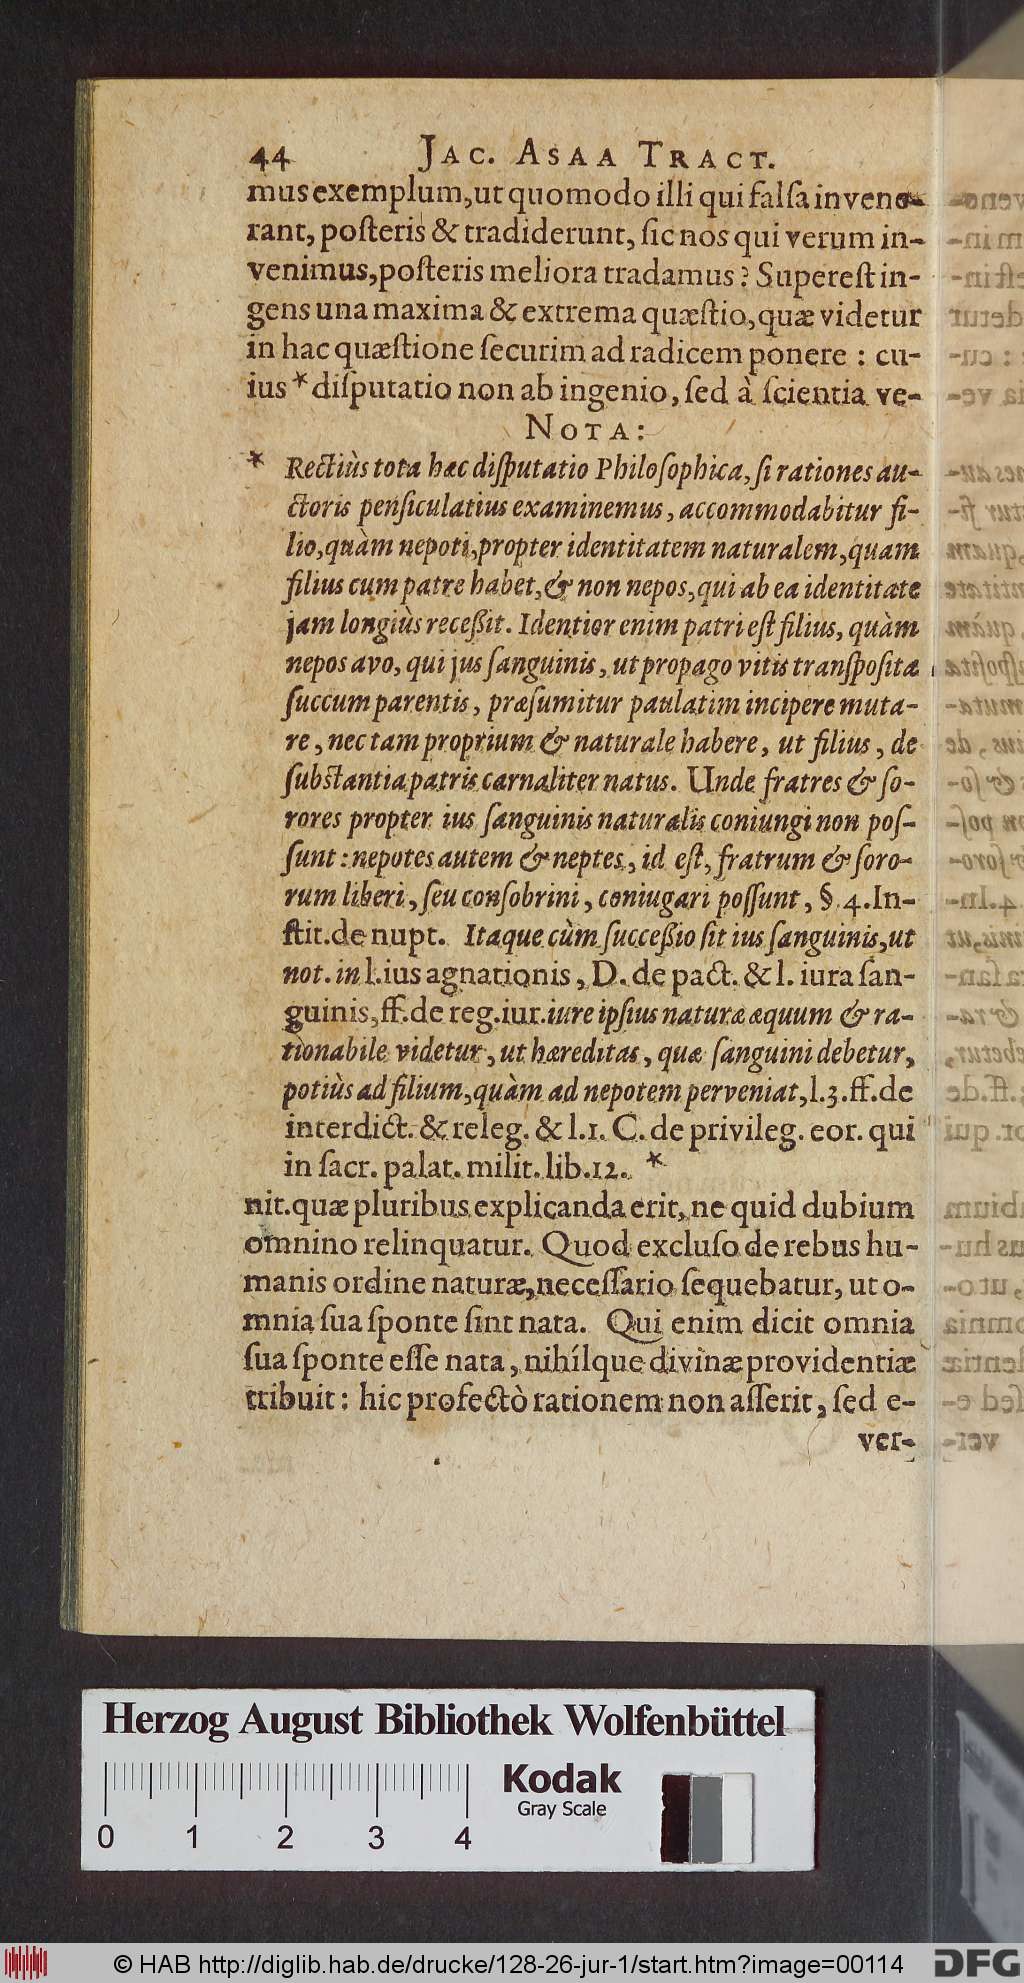 44 JAC. ASAA TRACT.
mus exemplum, ut quomodo illi qui falſa invene-
rant, poſteris & tradiderunt, ſic nos qui verum in-
venimus, poſteris meliora tradamus? Supereſt in-
gens una maxima & extrema quæſtio, quæ videtur
in hac quæſtione ſecurim ad radicem ponere : cu-
ius * diſputatio non ab ingenio, ſed à ſcientia ve-
NOTA:
* Rectiùs tota hæc diſputatio Philoſophica, ſi rationes au-
ctoris penſiculatius examinemus, accommodabitur fi-
lio, quàm nepoti, propter identitatem naturalem, quam
filius cum patre habet, & non nepos, qui ab ea identitate
jam longiùs receßit. Identior enim patri eſt filius, quàm
nepos avo, qui jus ſanguinis, ut propago vitis tranſpoſitæ
ſuccum parentis, præſumitur paulatim incipere muta-
re, nec tam proprium & naturale habere, ut filius, de
ſubſtantia patris carnaliter natus. Unde fratres & ſo-
rores propter ius ſanguinis naturalis coniungi non poſ-
ſunt : nepotes autem & neptes, id eſt, fratrum & ſoro-
rum liberi, ſeu conſobrini, coniugari poſſunt, §. 4. In-
ſtit. de nupt. Itaque cùm ſucceßio ſit ius ſanguinis, ut
not. in l. ius agnationis, D. de pact. & l. iura ſan-
guinis, ff. de reg. iur. iure ipſius naturæ æquum & ra-
tionabile videtur, ut hæreditas, quæ ſanguini debetur,
potiùs ad filium, quàm ad nepotem perveniat, l. 3. ff. de
interdict. & releg. & l. 1. C. de privileg. eor. qui
in ſacr. palat. milit. lib. 12. *
nit. quæ pluribus explicanda erit, ne quid dubium
omnino relinquatur. Quod excluſo de rebus hu-
manis ordine naturæ, neceſſario ſequebatur, ut o-
mnia ſua ſponte ſint nata. Qui enim dicit omnia
ſua ſponte eſſe nata, nihílque divinæ providentiæ
tribuit : hic profectò rationem non aſſerit, ſed e-
ver-
Herzog August Bibliothek Wolfenbüttel
Kodak
Gray Scale
0 1 2 3 4
© HAB http://diglib.hab.de/drucke/128-26-jur-1/start.htm?image=00114
DFG